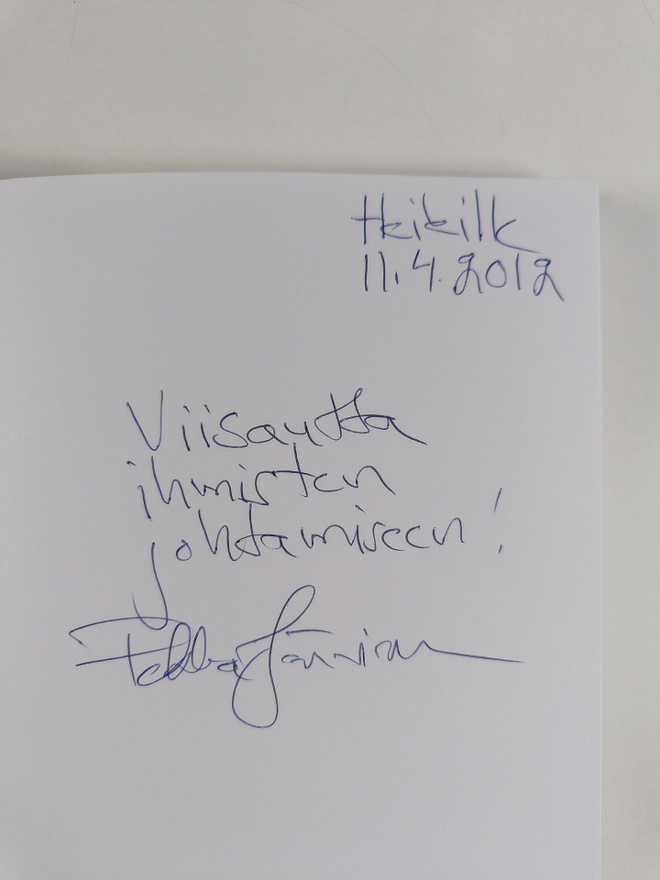 11.4.2012
Viisautta
ihmisten
johtamiseen!
Pekka Järvinen